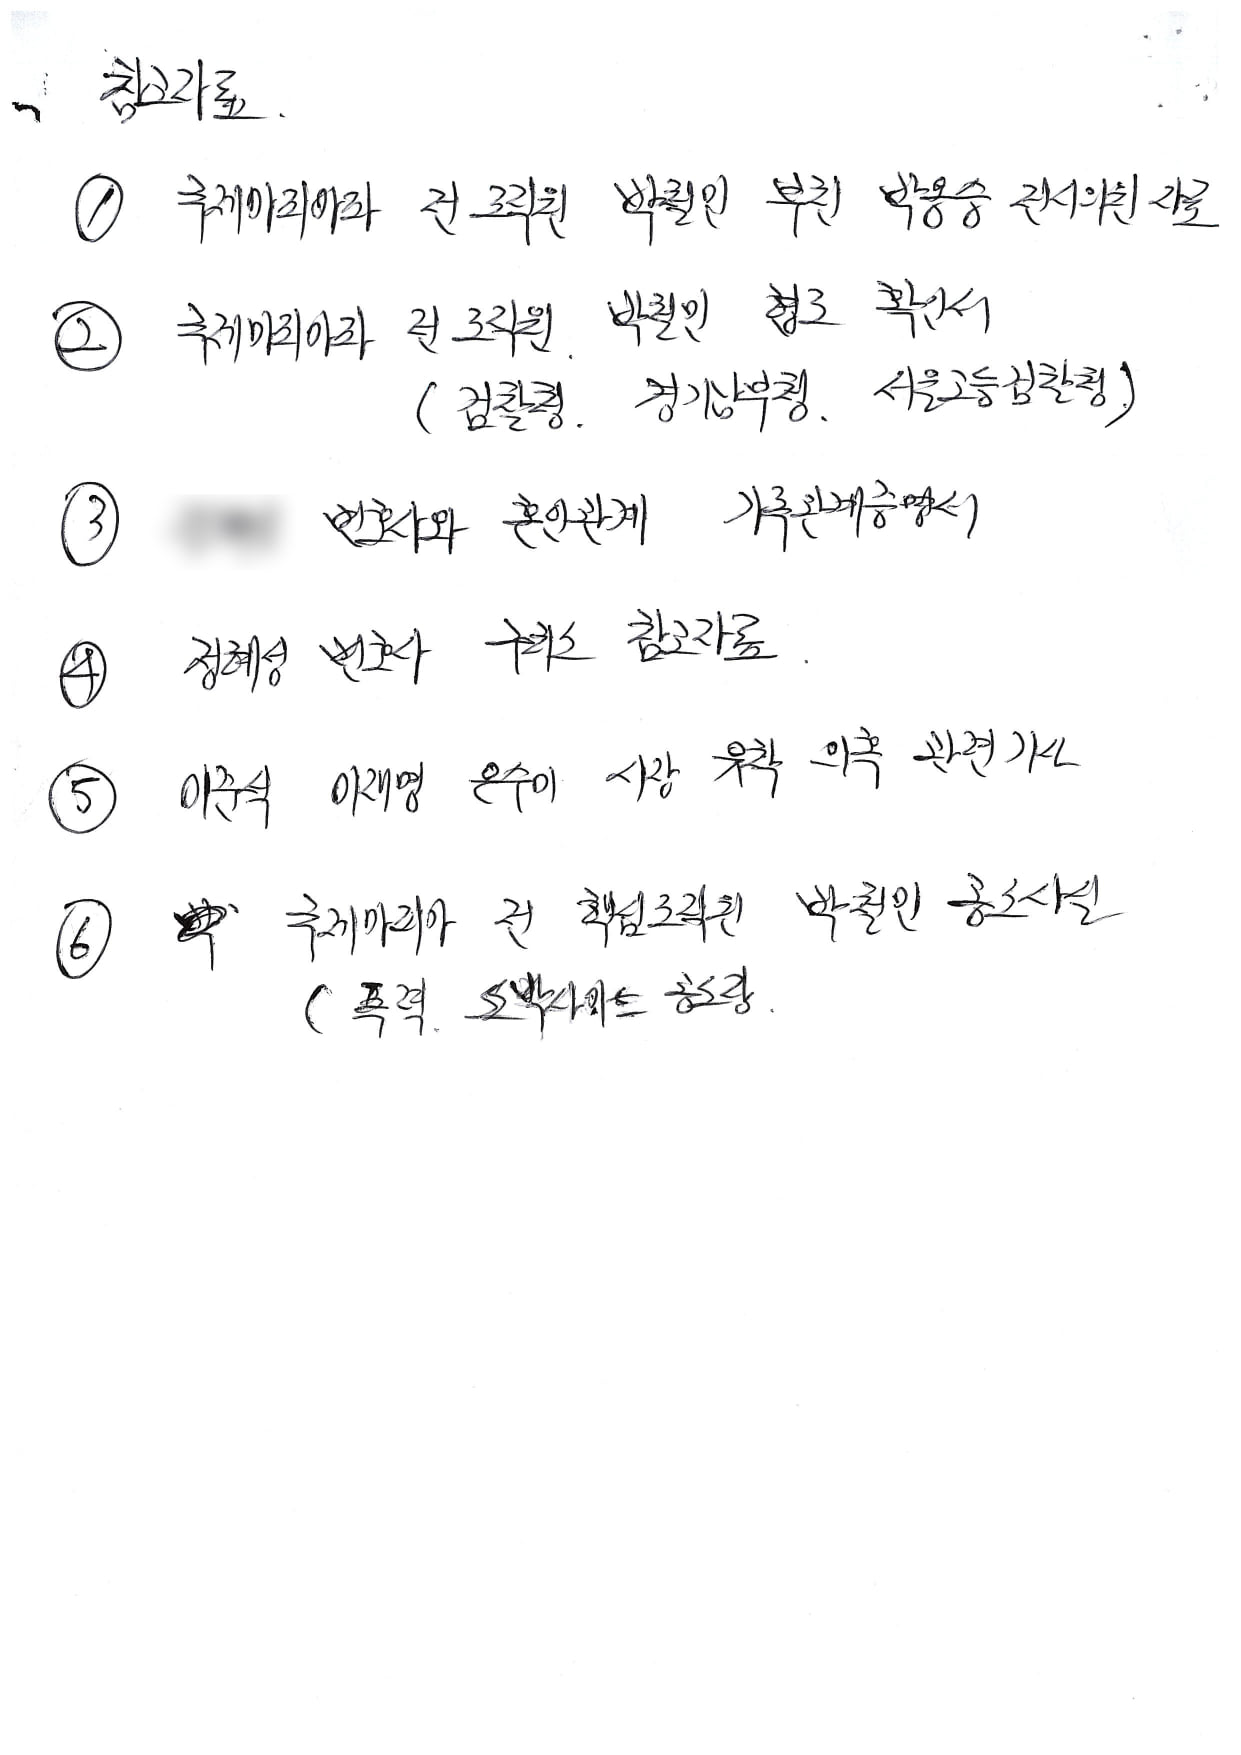 참고자료.
① 국제마피아파 전 조직원 박철민 부친 박용승 전시의원 자료
② 국제마피아파 전 조직원. 박철민 협조 확인서
(검찰청. 경기남부청. 서울고등검찰청)
③ 변호사와 혼인관계 가족관계증명서
④ 정혜성 변호사 구치소 참고자료.
⑤ 이준석 이재명 은수미 시장 유착 의혹 관련기사
⑥ 국제마피아 전 핵심조직원 박철민 공소사실
(폭력. 도박사이트 공소장.